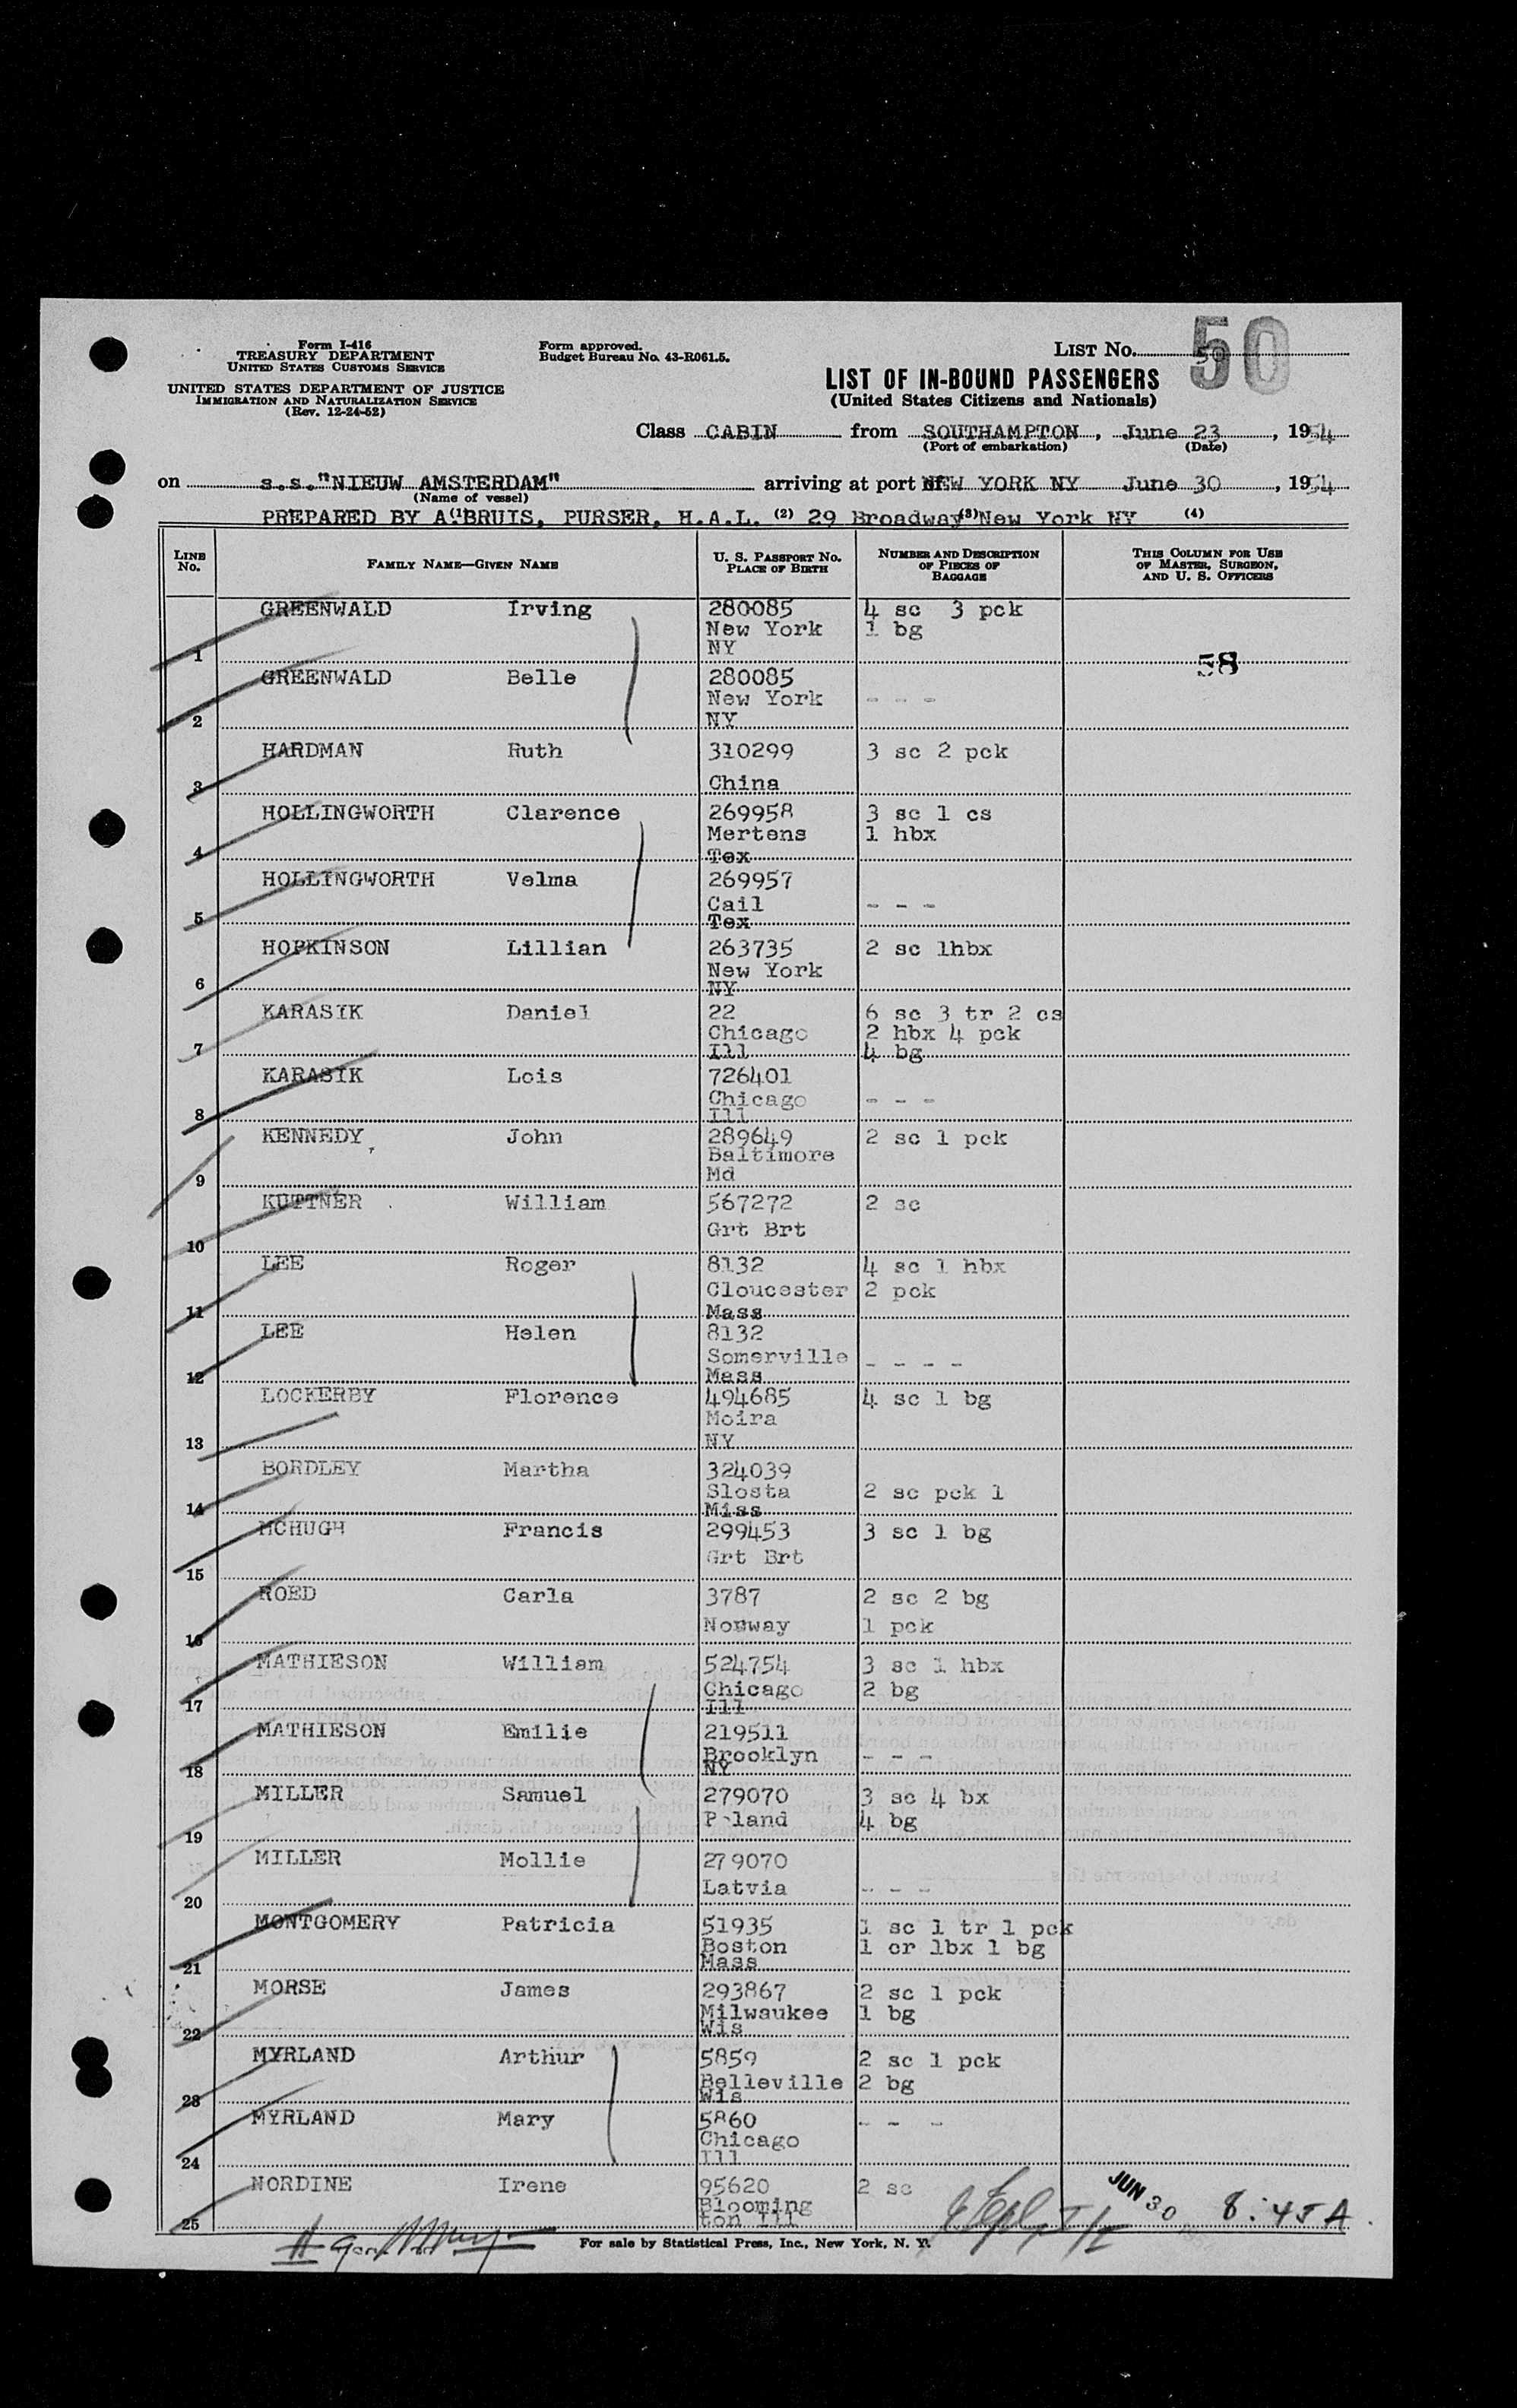 Form I-416
TREASURY DEPARTMENT
UNITED STATES CUSTOMS SERVICE
UNITED STATES DEPARTMENT OF JUSTICE
IMMIGRATION AND NATURALIZATION SERVICE
(Rev. 12-24-52)
Form approved.
Budget Bureau No. 43-R061.5.
LIST No. 50
50
LIST OF IN-BOUND PASSENGERS
(United States Citizens and Nationals)
Class CABIN from SOUTHAMPTON, June 23, 1954
(Port of embarkation) (Date)
on s.s."NIEUW AMSTERDAM" arriving at port of NEW YORK NY June 30, 1954
(Name of vessel)
PREPARED BY A(1)BRUIS, PURSER, H.A.L. (2) 29 Broadway(3)New York NY (4)
LINE No. FAMILY NAME—GIVEN NAME U. S. PASSPORT NO. PLACE OF BIRTH NUMBER AND DESCRIPTION OF PIECES OF BAGGAGE THIS COLUMN FOR USE OF MASTER, SURGEON, AND U. S. OFFICERS
GREENWALD Irving 280085 4 sc 3 pck
New York 1 bg
1 NY
58
GREENWALD Belle 280085
New York - - -
2 NY
HARDMAN Ruth 310299 3 sc 2 pck
3 China
HOLLINGWORTH Clarence 269958 3 sc 1 cs
Mertens 1 hbx
4 Tex
HOLLINGWORTH Velma 269957
Cail - - -
5 Tex
HOPKINSON Lillian 263735 2 sc 1hbx
New York
6 NY
KARASIK Daniel 22 6 sc 3 tr 2 cs
Chicago 2 hbx 4 pck
7 Ill 4 bg
KARASIK Lois 726401
Chicago - - -
8 Ill
KENNEDY, John 289649 2 sc 1 pck
Baltimore
9 Md
KUTTNER William 567272 2 sc
Grt Brt
10
LEE Roger 8132 4 sc 1 hbx
Cloucester 2 pck
11 Mass
LEE Helen 8132
Somerville - - - -
12 Mass
LOCKERBY Florence 494685 4 sc 1 bg
Moira
13 NY
BORDLEY Martha 324039
Slosta 2 sc pck 1
14 Miss
MCHUGH Francis 299453 3 sc 1 bg
Grt Brt
15
ROED Carla 3787 2 sc 2 bg
Norway 1 pck
16
MATHIESON William 524754 3 sc 1 hbx
Chicago 2 bg
17 Ill
MATHIESON Emilie 219511
Brooklyn - - -
18 NY
MILLER Samuel 279070 3 sc 4 bx
P-land 4 bg
19
MILLER Mollie 279070
Latvia - - -
20
MONTGOMERY Patricia 51935 1 sc 1 tr 1 pck
Boston 1 cr 1bx 1 bg
21 Mass
MORSE James 293867 2 sc 1 pck
Milwaukee 1 bg
22 Wis
MYRLAND Arthur 5859 2 sc 1 pck
Belleville 2 bg
23 Wis
MYRLAND Mary 5860 - - -
Chicago
24 Ill
NORDINE Irene 95620 2 sc
Blooming
25 ton Ill
JUN 30 8:45 A.
For sale by Statistical Press, Inc., New York, N. Y.